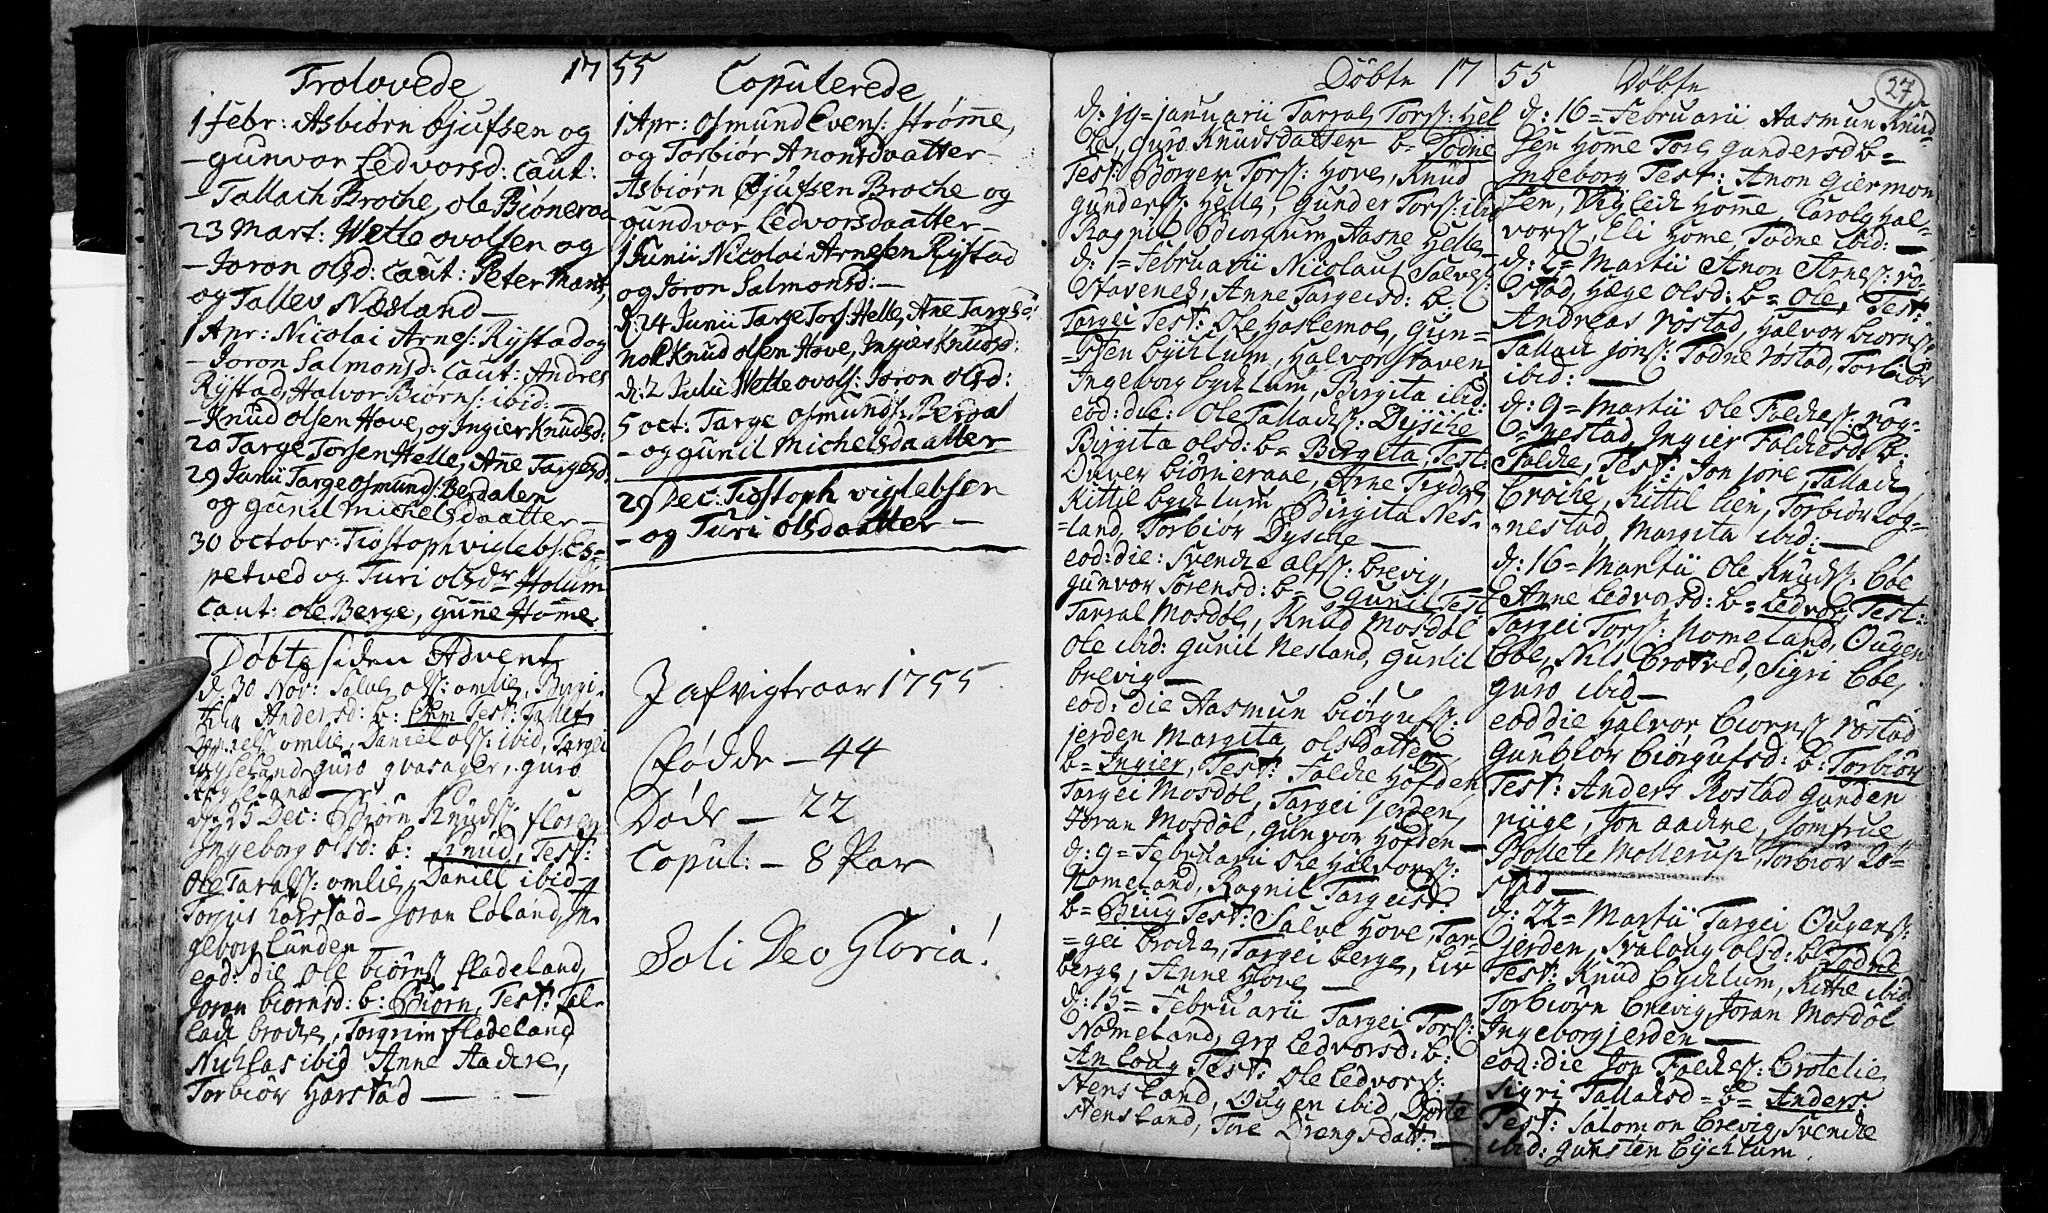 Trolovede 17
1 Febr: Asbiørn Ojufsen og
- gunvor Ledvorsd: Caut:
- Tallach Broche, ole Biøneraa
23 Mart: Wetle ovolsen og
- Joron olsd: Caut: Peter
og Tallev Næsland -
1 Apr: Nicolai Arnes: Rÿstad og
- Joron Salmonsd: Caut: Andres
Rÿstad, Halvor Biørns: ibid: -
- Knud olsen Hove, og Ingier Knudsd:
20 Targe Torsen Helle, Ane Targesd:
29 Junii Targe osmunds: Berdalen
og gunil Michelsdaatter -
30 octobr: Tiostoph viglebs: Es-
petved og Turi olsdr Holum
Caut: ole Berge, gune Home
Døbte siden Advent
d: 30 Nov: Salve ols: omlie, Birgi-
tha Andersd: b: Test: Tallef
omlie, Daniel ols: ibid, Targei
guro qvasager, guro
d: 25 Dec: Biørn Knuds: floren
Ingeborg olsd: b: Knud, Test:
Ole Taralds: omlie, Daniel ibid -
Torjus - Joran Løland, In-
geborg Lunden -
eod: die Ole Biørns fladeland,
Joran Biørnsd: b: Biørn, Test: Tal-
lach broche, Torgrim fladeland
Nichlas ibid Anne Aackre,
Torbiør Harstad -
55 Copulerede
1 Apr: osmund Evens: strøme,
og Torbiør Anonsdaatter -
Asbiørn Ojufsen Broche og
gundvor Ledvorsdaatter -
1 Junii Nicolai Arnesen Rÿstad
og Joron Salmonsd: -
d: 24 Junii Targe Tors: Helle, Ane Targsd:
nok Knud olsen Hove, Ingier Knudsd:
d: 2 Julii Wetle ovols: Joron olsd:
5 oct: Targe osmunds: Berdal
- og gunil Michelsdaatter -
29 Dec: Tiostoph viglebsen
- og Turi olsdaatter -
J afvigtraar 1755
Fødde - 44
Døde - 22
Copul: - 8 Par
Soli Deo Gloria!
Døbte 17
d: 19 = januarii Tarral Tors: Hel
le, guro Knudsdatter b = Todne
Test: Borger Tors: Hove, Knud
gunders: Helle, Gunder Tors: ibid
Ragnil Aasne Helle -
d: 1 = Februarii Nicolaus Salves:
Stavenes, Anne Targeisd: b:
Targei Test: Ole Haslemoe, Gun-
sten bÿchlum, Halvor staven:
Ingeborg bÿchlum, Birgita ibid:
eod: die: Ole Tallachs: Dÿsche
Birgita olsd: b = Birgita, Test:
Duver biørneraae, Arne
Kittil bÿchlum Birgita Nes-
= land, Torbiør Dÿsche -
eod: die: Svenche alfs: brevig,
gunvor Sørensd: b = Gunil Test
Tarral Mosdøl, Knud Mosdøl
ole ibid: Gunil Nesland, Gunil
brevig -
eod: die Aasmun biørgufs:
jerden Margita olsdatter
b = Ingier, Test: Folche Hofden
Targei Mosdøl, Targei jerden,
Joran Mosdøl, gunvor Hofden -
d: 9 = Februarii Ole Halvors:
Nomeland, Ragnil Targeisd:
b = Test: Salve Hove, Tar-
= gei broche, Targei berge, Liv
berge, Anne Hove -
d: 15 = Februarii Targei Tors:
Nomeland, gro Ledvorsd: b:
Anlaug Test: Ole Ledvors:
stensland, Ougen ibid, Dorte
stensland, Tore Drengsdatt: -
55 Døbte 27
d: 16 = Februarii Aasmun Knud-
sen Home Tore gundersd b =
Ingeborg Test: Anon Giermon
sen, Vigleich Home, Caroly Hal-
vors, Eli Home, Todne ibid: -
d: 2 = Martii Anon Arnes: rö-
stad, Hæge olsd: b = ole, Test:
Andreas röstad, Halvor biørns:
Tallach jons: Todne röstad, Torbiør
ibid: -
d: 9 = Martii Ole Folches: rög-
= nestad, Ingier Folchesd b:
Folche, Test: Jon jore, Tallach
broche, Kittil Lien, Torbiør rög-
= nestad, Margita ibid: -
d: 16 = Martii Ole Knuds: Ebe
Anne Ledvorsd: b = Ledvor, Test:
Targei Tors: Nomeland, Ougen
Ebe, Nils Brotved, Sigri Ebe,
guro ibid -
eod die Halvor Biorns röstad
Gunbior biørgufsd: b: Torbiør
Test: Anders Röstad Gunder
riige, Jon aackre, Jomfrue
Bollete Mollerup, Torbiør Rö-
stad -
d: 22 = Martii Targei Ougens:
jerden, Svalaug olsd: b: Todne
Test: Knud bÿchlum, Kittil ibid:
Torbiørn brevig, Joran Mosdøl
Ingeborg jerden -
eod: die Jon Folches: brotelie
Sigri Tallachsd = b = Anders:
Test: Salomon brevig, Svenche
ibid: gunsten bÿchlum.